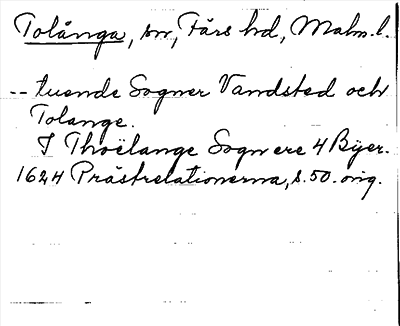 Tolånga, sn, Färs hd, Malm. l.
-- tuende Sogner Vandsted och
Tolange.
I Thoëlange Sogn ere 4 Byer.
1624 Prästrelationerna, s. 50. orig.